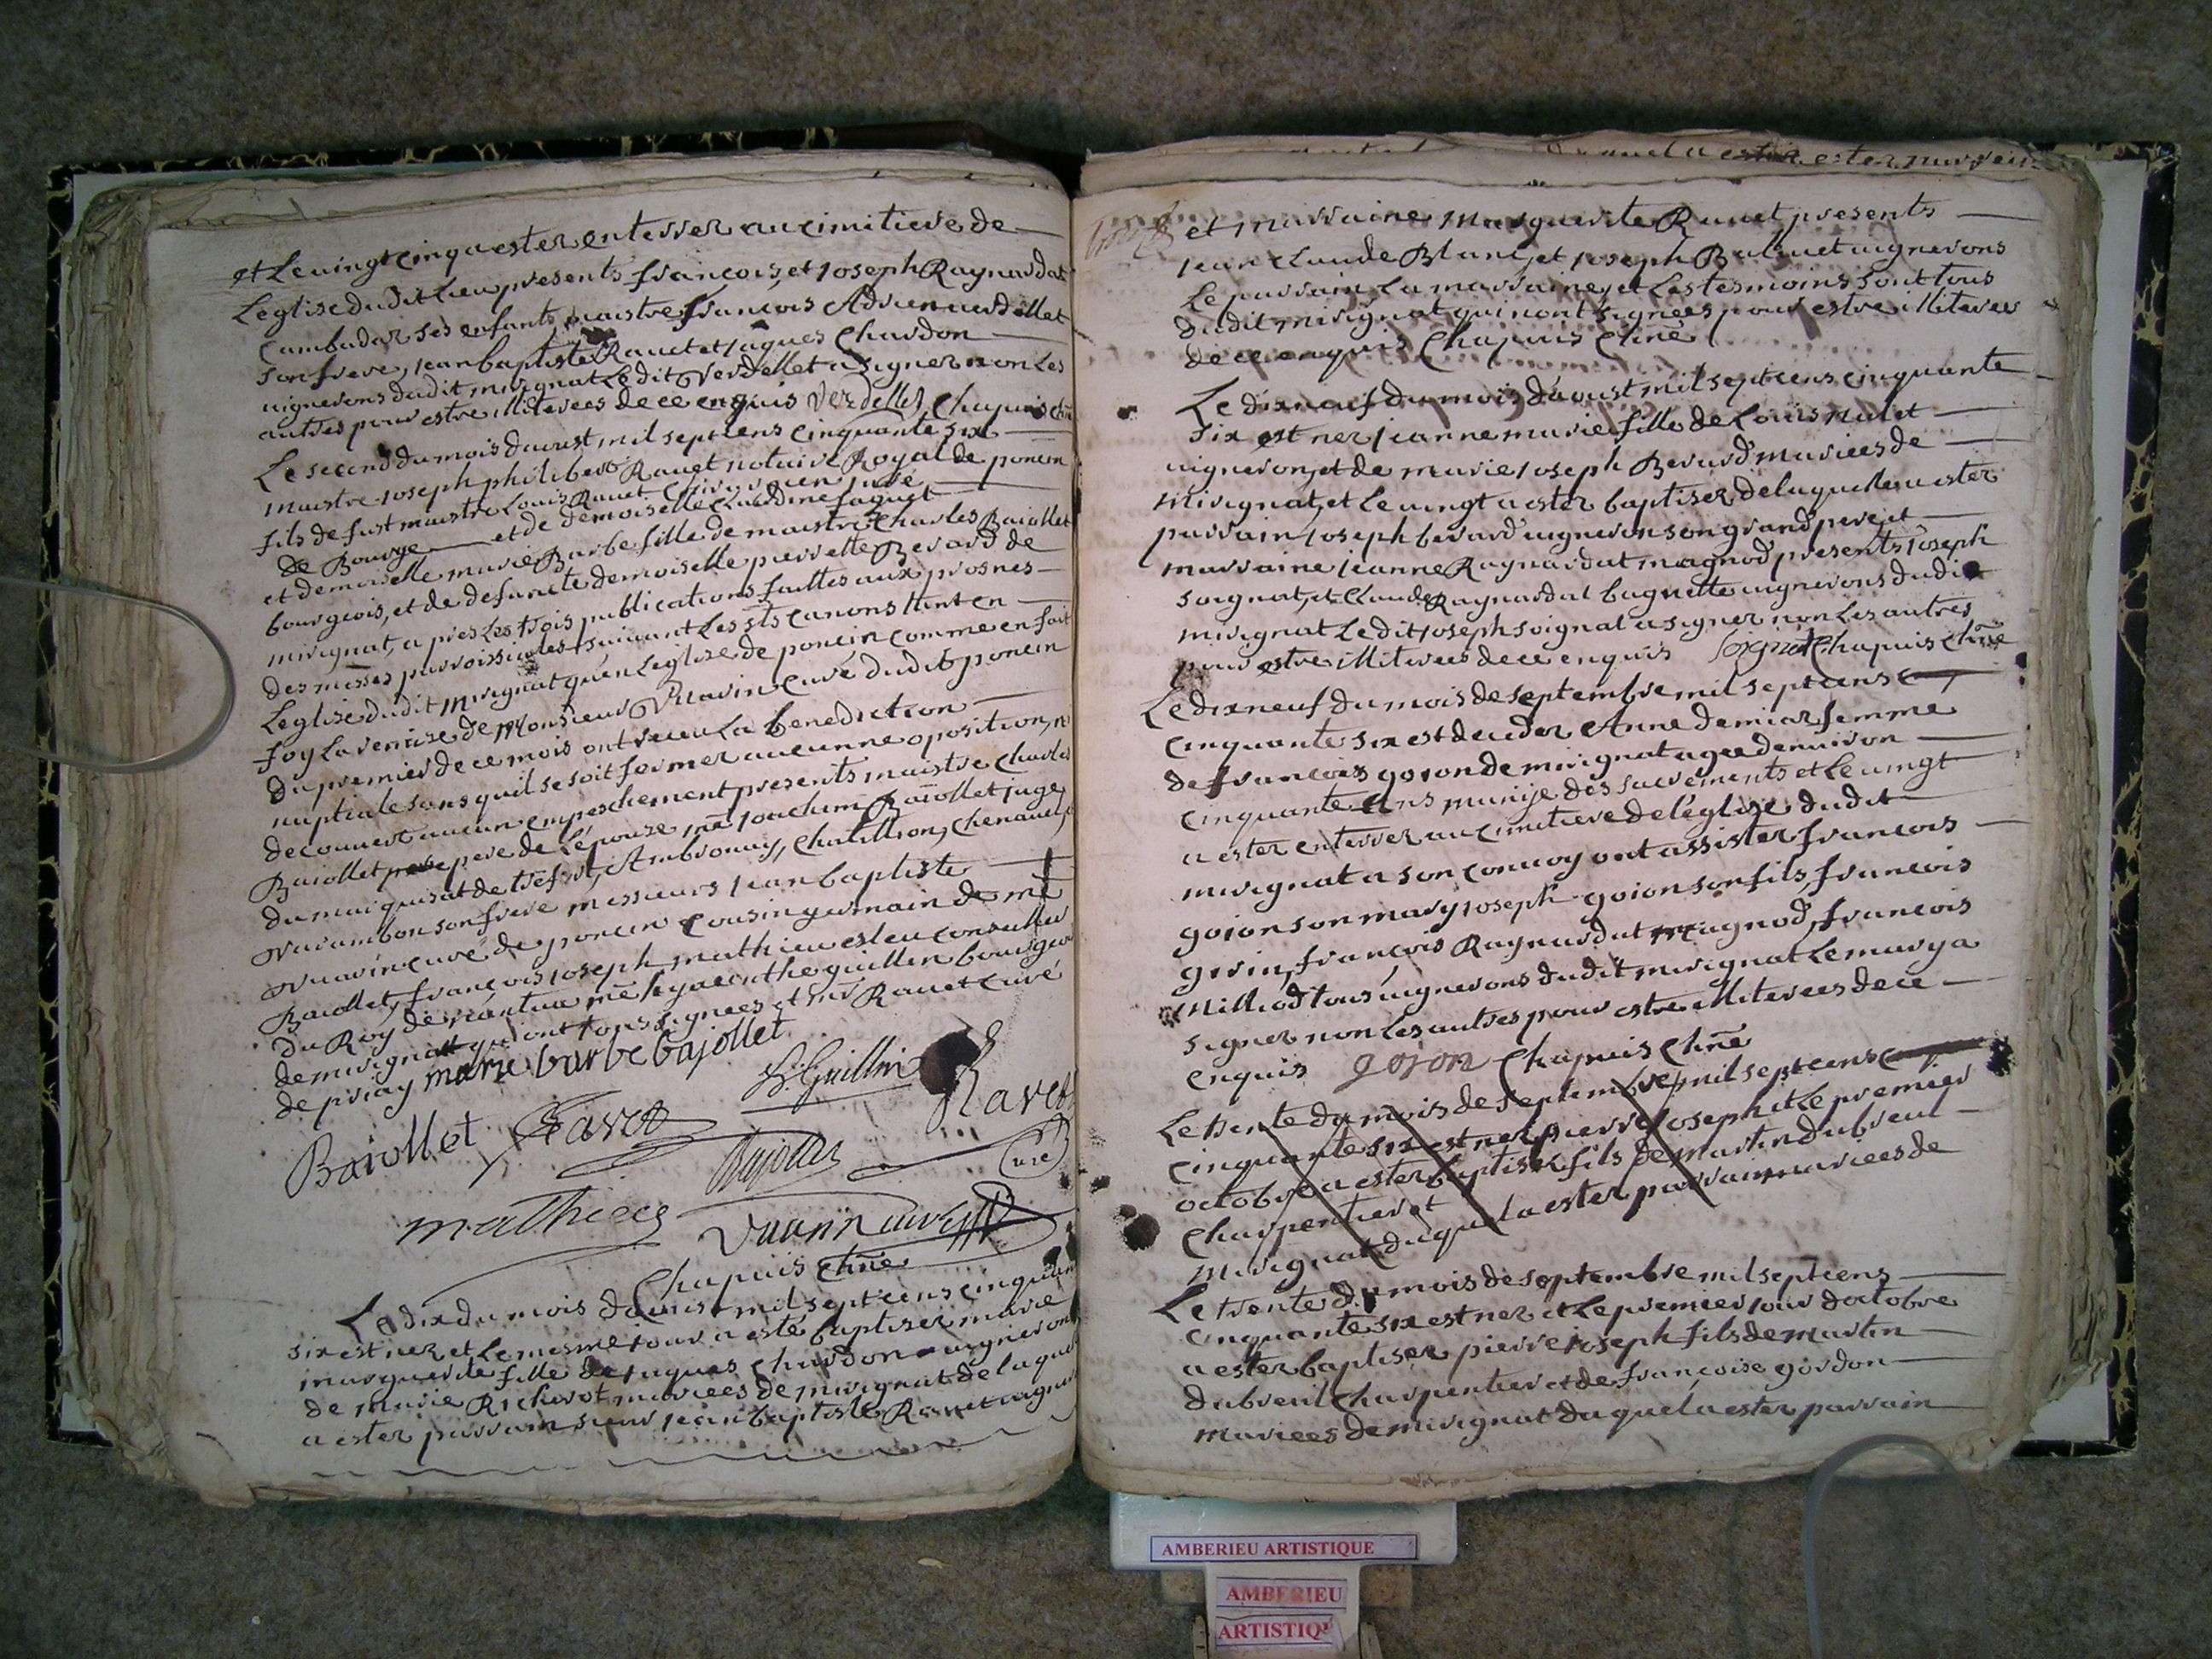 et le uingt cinq a ester enterrer au cimitiere de
Leglise dudit Lieu presents francois, et Joseph Raynardat
Cambadar ses enfants, maistre francois Adrien uerdellet
son frere, Jean baptiste Rauet et Jaques Chardon
uignerons dudit mirignat Ledit Verdellet a signer non les
autres pour estre illiterees de ce enquis Verdellet Chapuis
Le second du mois daoust mil sept cens cinquante six
maistre Joseph philibert Rauet notaire Royal de poncin
fils de fust maistre Louis Rauet Chirurgien juré
de Bourge et de demoiselle Claudine faguet
et demoiselle marie Barbe fille de maistre Charles Baiollet
bourgeois, et de defuncte demoiselle pierrette Berard de
mirignat, a pres les trois publications faittes aux prosnes
des messes parroissiales suiuant les sts canons tant en
Leglise dudit mirignat qu'en Leglise de poncin comme en fait
foy La remise de Monsieur Vuarin Curé dudit poncin
du premier de ce mois ont receu La benediction
nuptiale sans quil se soit former aucunne oposition, n
decouuert aucun empeschement presents maistre Charles
Baiollet pere de L'épouze, me Joachim Baiollet juge
du marquisat de trefort, Ambronay, Chatillion, Chenauel,
Varambon son frere messieurs Jean baptiste
Vuarin curé de poncin Cousin germain de me
Baiollet, francois Joseph mathieu esleu conseiller
du Roy de nantua me hyacinthe guillin bourgeois
de mirignat qui ont tous signees et mr Rauet curé
de priay marie barbe bajollet
h Guillin Ravet
Baiollet Ravet Bajollet curé
mathieu Vuarin curé
Chapuis Chne
Le dix du mois daoust mil sept cens cinquan
six est ner et Le mesme jour a esté baptiser marie
marguerite fille de jaques Chardon uigneron
de marie Richerot mariees de mirignat de laquel
a ester parrain sieur jean baptiste Rauet uigner
et marraine marguerite Rauet presents
jean claude Blanc, et Joseph Babuet uignerons
Le parrain La marraine, et Les tesmoins sont tous
dudit mirignat qui n'ont signees pour estre illiterees
de ce enquis Chapuis Chne
Le dixneuf du mois daoust mil sept cens cinquante
six est ner jeanne marie fille de Louis mulet
uigneron, et de marie Joseph Berard mariees de
mirignat, et Le uingt a ester baptiser de laquelle a ester
parrain Joseph berard uigneron son grand pere, et
marraine jeanne Raynardat magnod presents Joseph
soignat, et Claude Raynardat bugnette uignerons dudit
mirignat Ledit Joseph soignat a signer non Les autres
pour estre illiterees de ce enquis Soignat Chapuis Chne
Le dixneuf du mois de septembre mil sept cens
cinquante six est deceder Anne demiar femme
de francois gojon de mirignat agee denuiron
cinquante ans munije des sacrements et Le uingt
a ester enterrer au cimitiere de l'eglise dudit
mirignat a son conuoy ont assister francois
gojon son mary Joseph gojon son fils, francois
girin, francois Raynardat magnod, francois
Milliod tous uignerons dudit mirignat Le mary a
signer non Les autres pour estre illiterees de ce
enquis gojon Chapuis Chne
Le trente du mois de septembre mil sept cens
cinquante six est ner pierre Joseph et Le premier
octobre a ester baptiser fils de martin dubreul
Charpentier et
mirignat duquel a ester parrain mariees de
Le trente du mois de septembre mil sept cens
cinquante six est ner et Le premier jour doctobre
a ester baptiser pierre joseph fils de martin
dubreul Charpentier et de francoise gordon
mariees de mirignat duquel a ester parrain
AMBERIEU ARTISTIQUE
AMBERIEU
ARTISTIQ